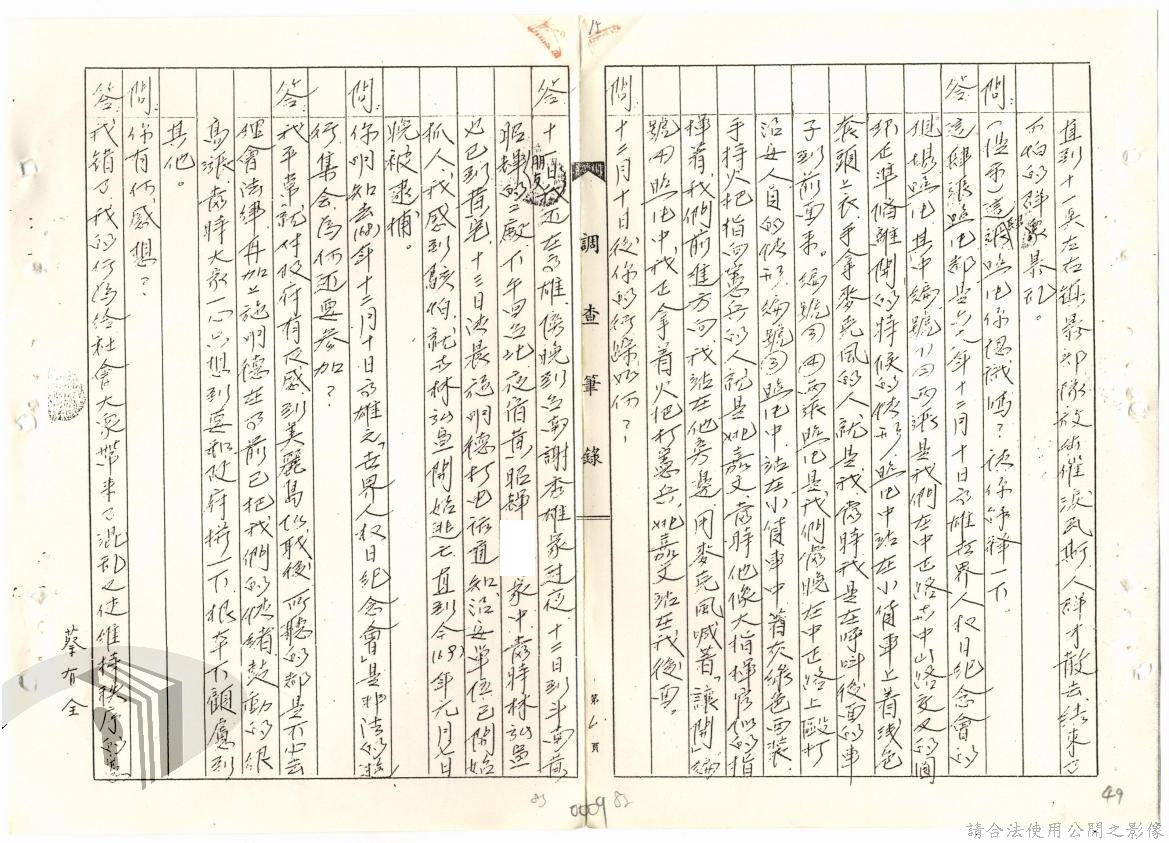 直到十一点左右鎮暴部隊放射催淚瓦斯人群才散去結束了
不怕的群眾暴亂。
問:(提示)這張照片你認識嗎?該你解釋一下。
答:這肆張照片都是六八年十二月十日高雄世界人权日紀念會的
現場照片其中編號(1)(2)兩張是我們在中正路中山路交叉的圓
环正準備離開的時候的情形,照片中站在小貨車上着浅色
套頭上衣,手拿麥克風的人就是我,當時我是在呼叫後面的車
子到前面來。編號(3)(4)兩張照片是我們當晚在中正路上毆打
治安人員的情形,編號(3)照片中,站在小貨車中着灰綠色西裝,
手持火把指向憲兵的人就是姚嘉文,當時他像大指揮官似的指
揮着我們前進方向,我站在他旁邊,用麥克風喊著「讓開」編
號(4)照片中,我正拿着火把打憲兵,姚嘉文站在我後面。
問:十二月十日後你的行踪如何?
調查筆錄
第 頁
答:十一日我還在高雄,傍晚到台南謝秀雄家过夜,十二日到斗南黃
昭輝的朋友三嚴下午回台北,夜宿黃昭輝 家中,當時林弘宣
也已到黃宅,十三日凌晨施明德打电話通知,治安單位已開始
抓人,我感到駭怕,就与林弘宣開始逃亡直到今(69)年元月 日
晚被逮捕。
問:你明知去(68)年十二月十日高雄之「世界人权日紀念會」是非法的遊
行集會,為何還要参加?
答:我平常就对政府有反感,到美麗島任職後,所聽的都是不必去
理會法律,再加上施明德在事前已把我們的情緒鼓動的很
高漲,當時大家一心只想到要和政府拼一下,根本不顧慮到
其他。
問:你有何感想?
答:我錯了,我的行為給社會大衆带來了混乱,也使維持秩序的憲
蔡有全
0009
82
83
49
請合法使用公開之影像